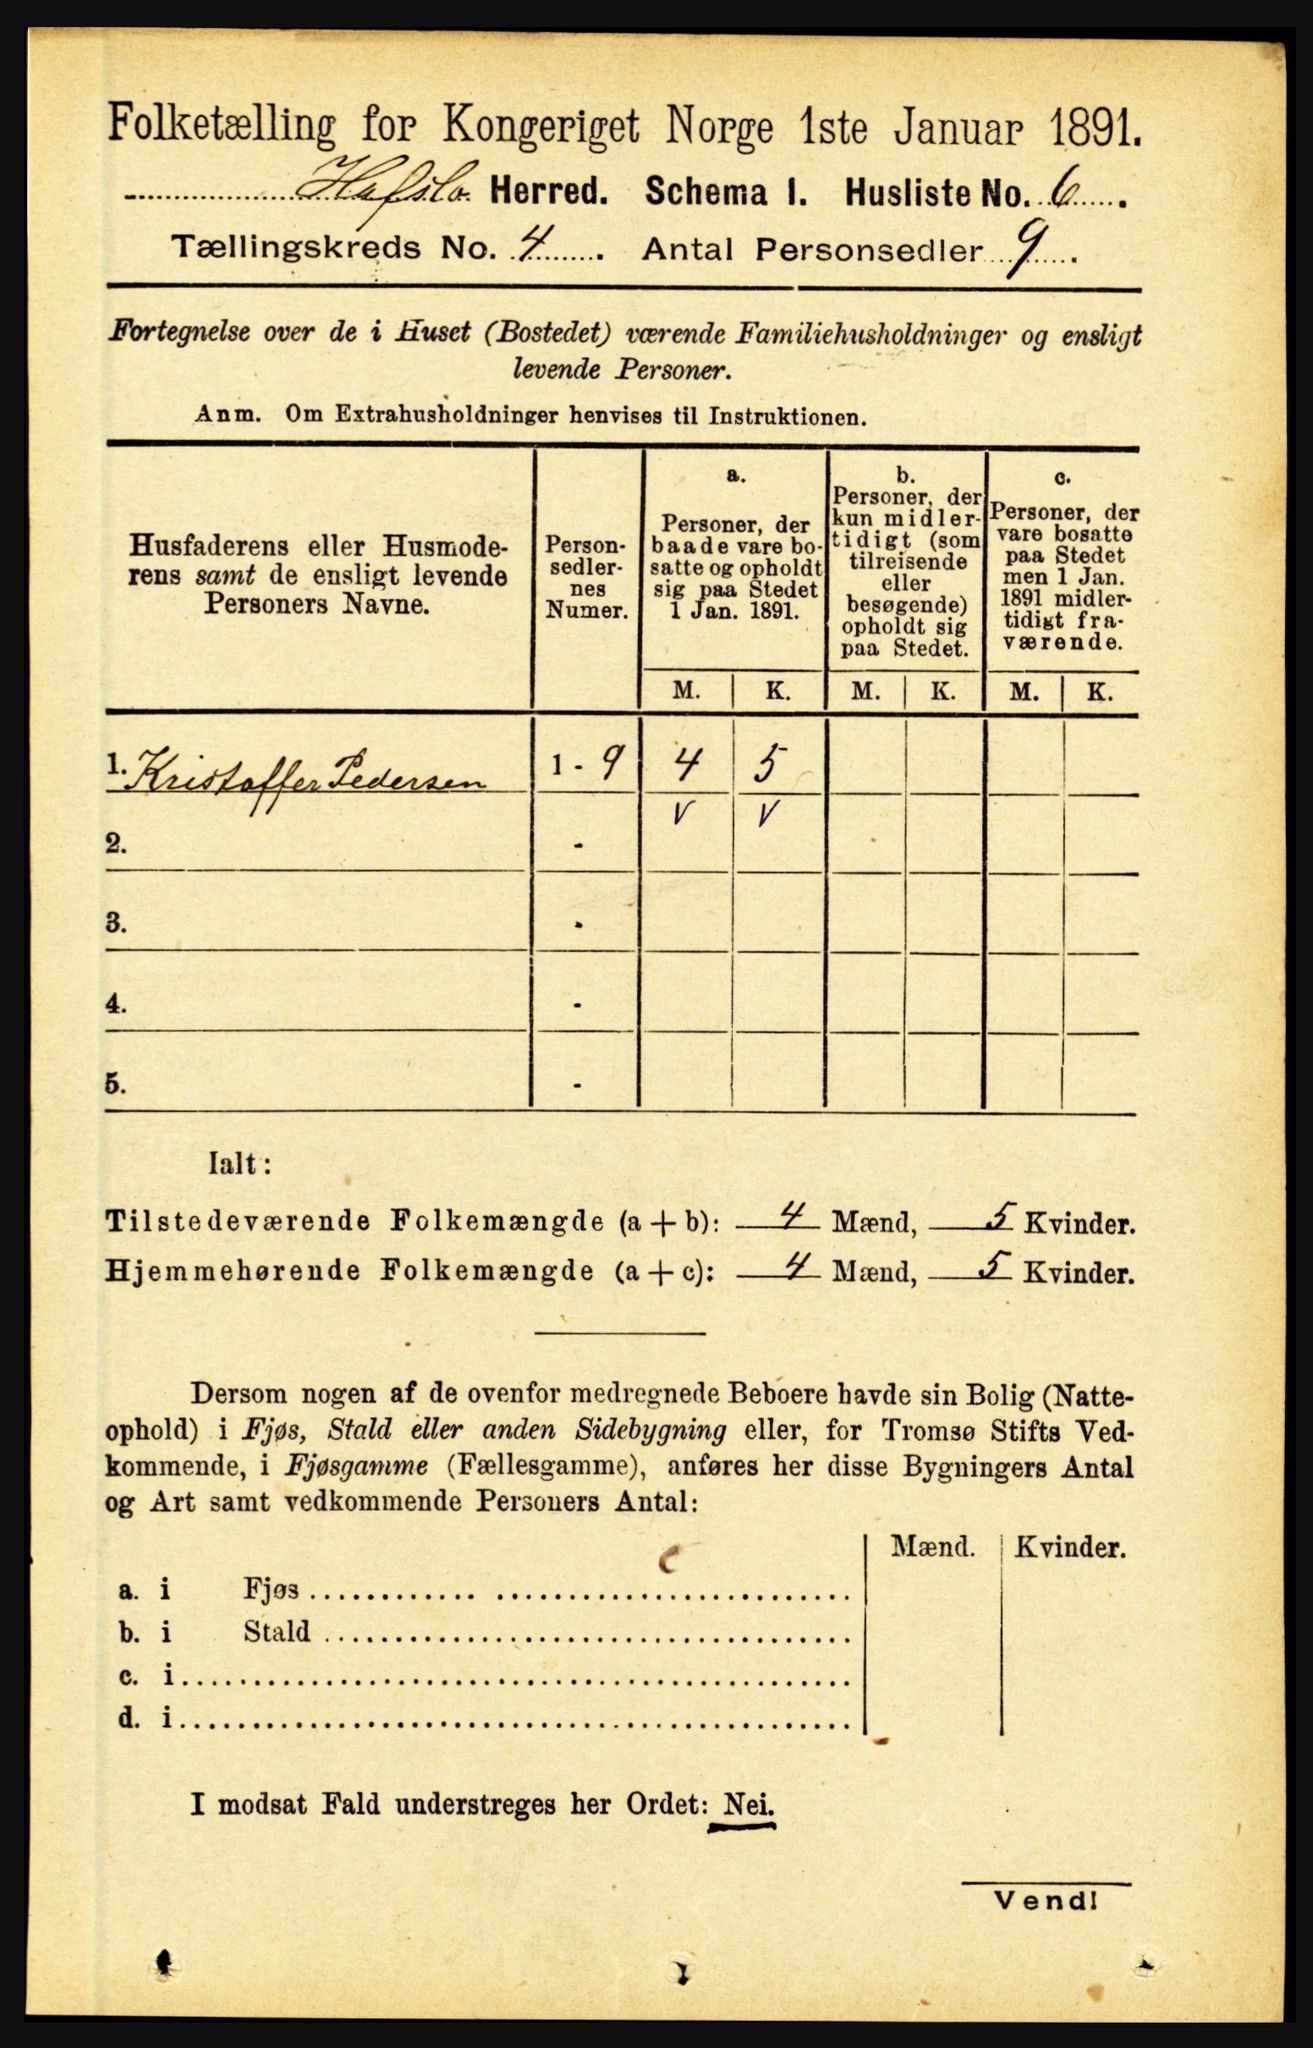 Folketælling for Kongeriget Norge 1ste Januar 1891.
Hafslo Herred. Schema I. Husliste No. 6.
Tællingskreds No. 4. Antal Personsedler 9.
Fortegnelse over de i Huset (Bostedet) værende Familiehusholdninger og ensligt
levende Personer.
Anm. Om Extrahusholdninger henvises til Instruktionen.
Husfaderens eller Husmode-
rens samt de ensligt levende
Personers Navne.
Person-
sedler-
nes
Numer.
a.
Personer, der
baade vare bo-
satte og opholdt
sig paa Stedet
1 Jan. 1891.
b.
Personer, der
kun midler-
tidigt (som
tilreisende
eller
besøgende)
opholdt sig
paa Stedet.
c.
Personer, der
vare bosatte
paa Stedet
men 1 Jan.
1891 midler-
tidigt fra-
værende.
M. K. M. K. M. K.
1. Kristoffer Pedersen 1 - 9 4 5
V V
2. -
3. -
4. -
5. -
Ialt:
Tilstedeværende Folkemængde (a + b): 4 Mænd, 5 Kvinder.
Hjemmehørende Folkemængde (a + c): 4 Mænd, 5 Kvinder.
Dersom nogen af de ovenfor medregnede Beboere havde sin Bolig (Natte-
ophold) i Fjøs, Stald eller anden Sidebygning eller, for Tromsø Stifts Ved-
kommende, i Fjøsgamme (Fællesgamme), anføres her disse Bygningers Antal
og Art samt vedkommende Personers Antal:
Mænd. Kvinder.
a. i Fjøs
b. i Stald
c. i
d. i
I modsat Fald understreges her Ordet: Nei.
Vend!